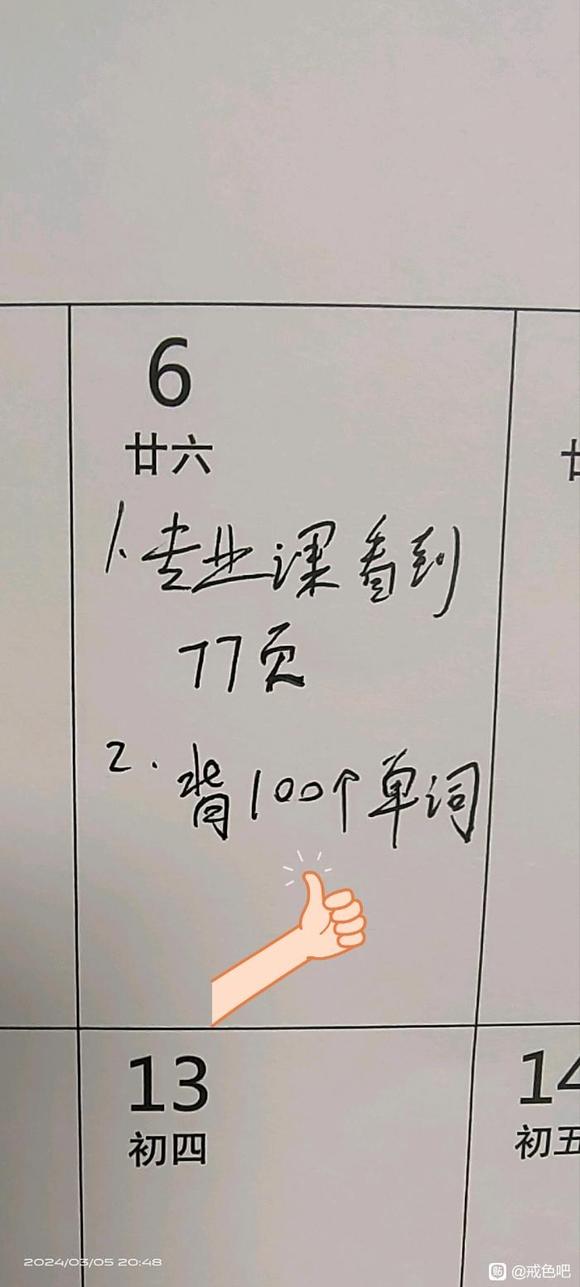 6
廿六
1、专业课看到
77页
2.背100个单词
13
初四
14
初五
2024/03/05 20:48
贴 @戒色吧